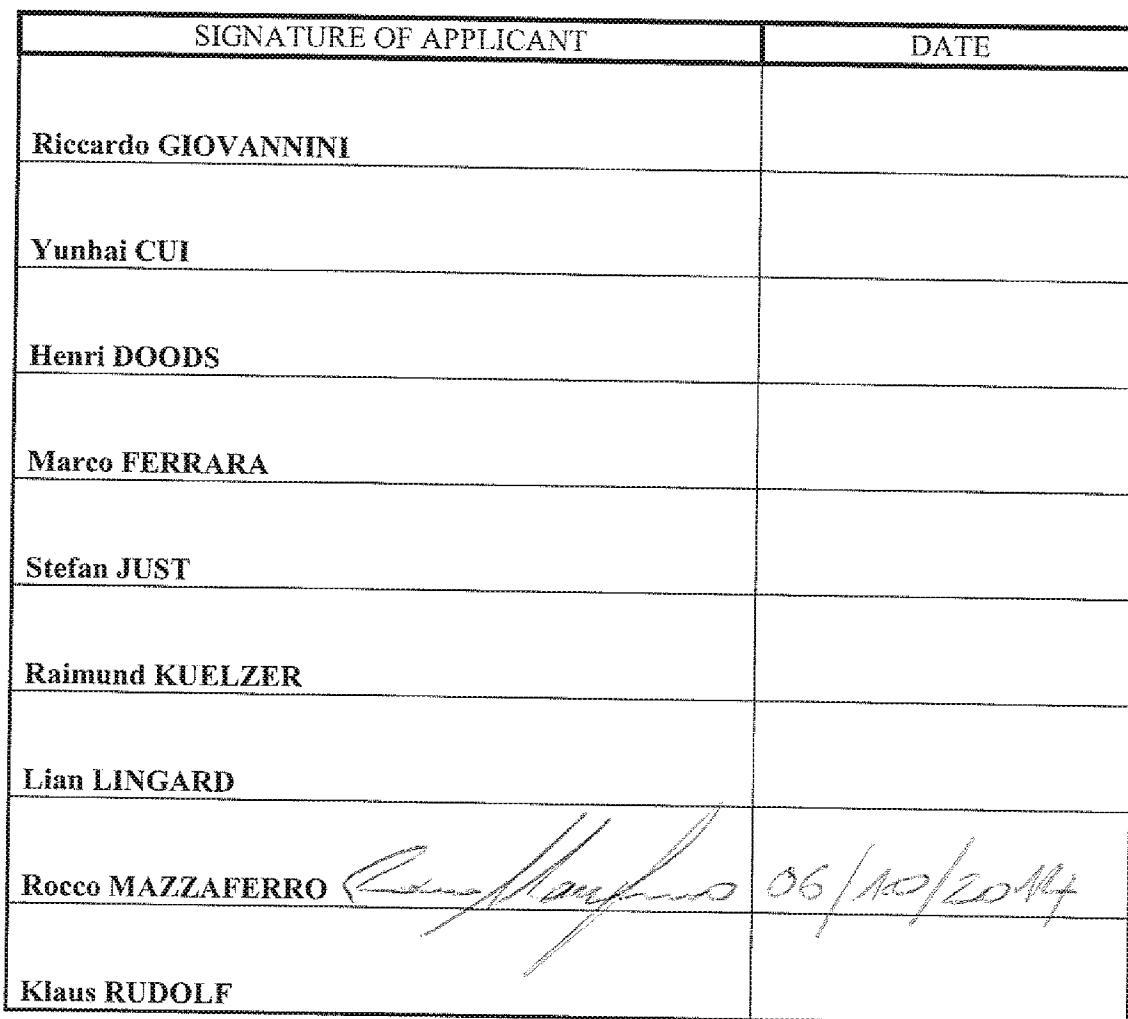 SIGNATURE OF APPLICANT DATE
Riccardo GIOVANNINI
Yunhai CUI
Henri DOODS
Marco FERRARA
Stefan JUST
Raimund KUELZER
Lian LINGARD
Rocco MAZZAFERRO 06/10/2014
Klaus RUDOLF